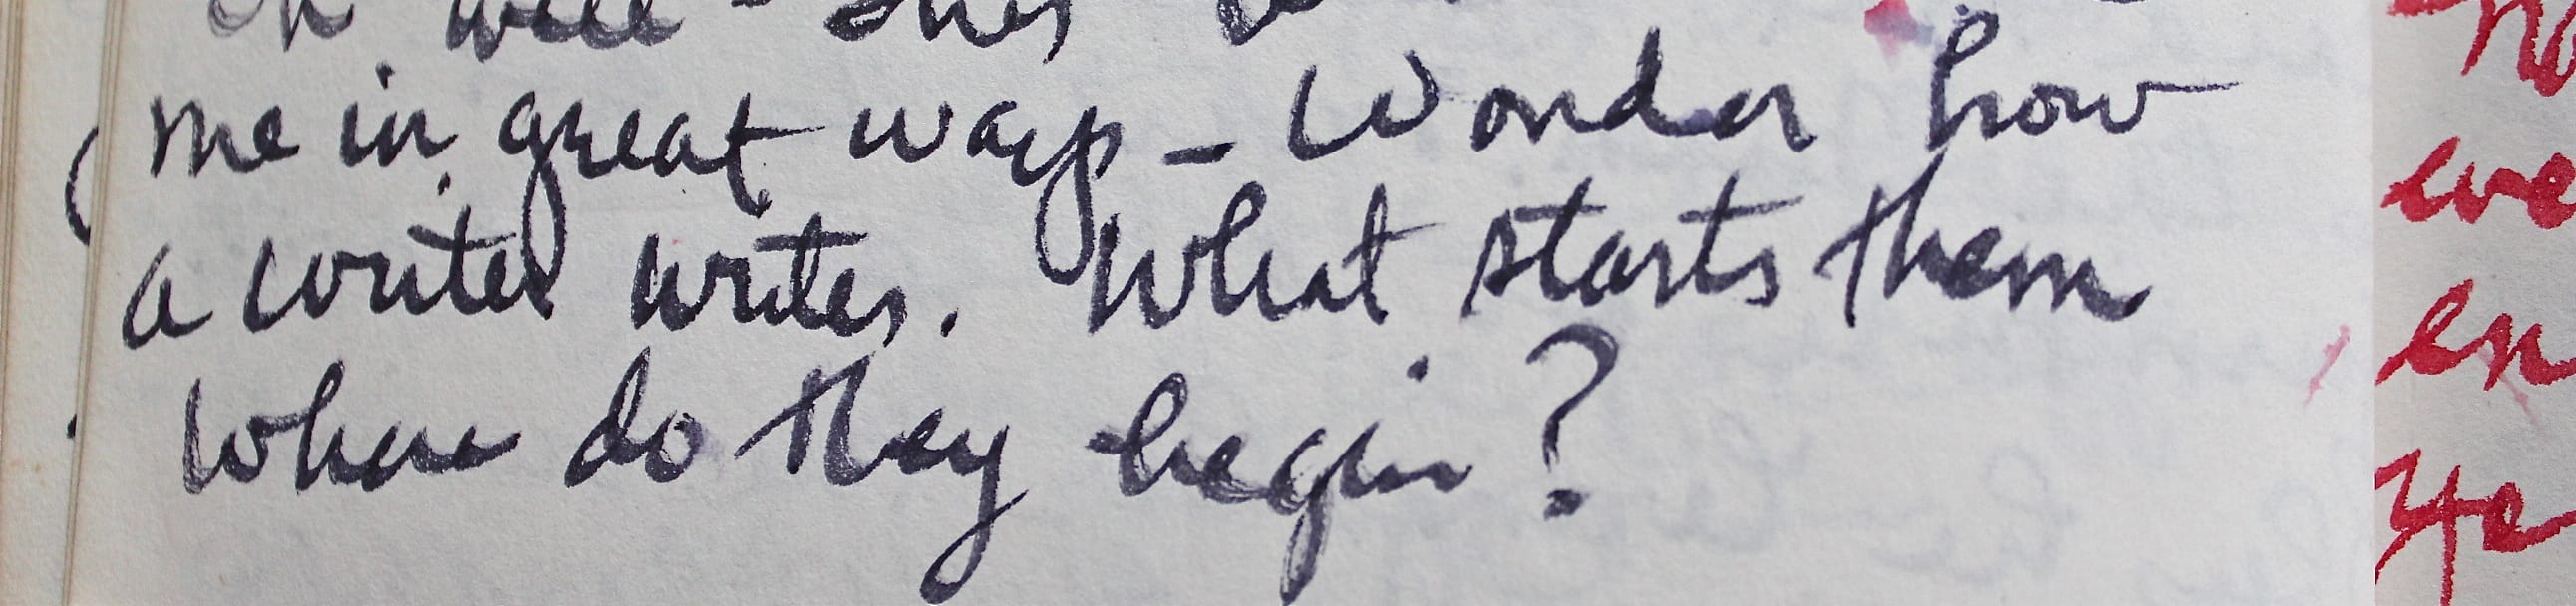 me in great ways – Wonder how
a writer writes. What starts them
Where do they begin?
we
en